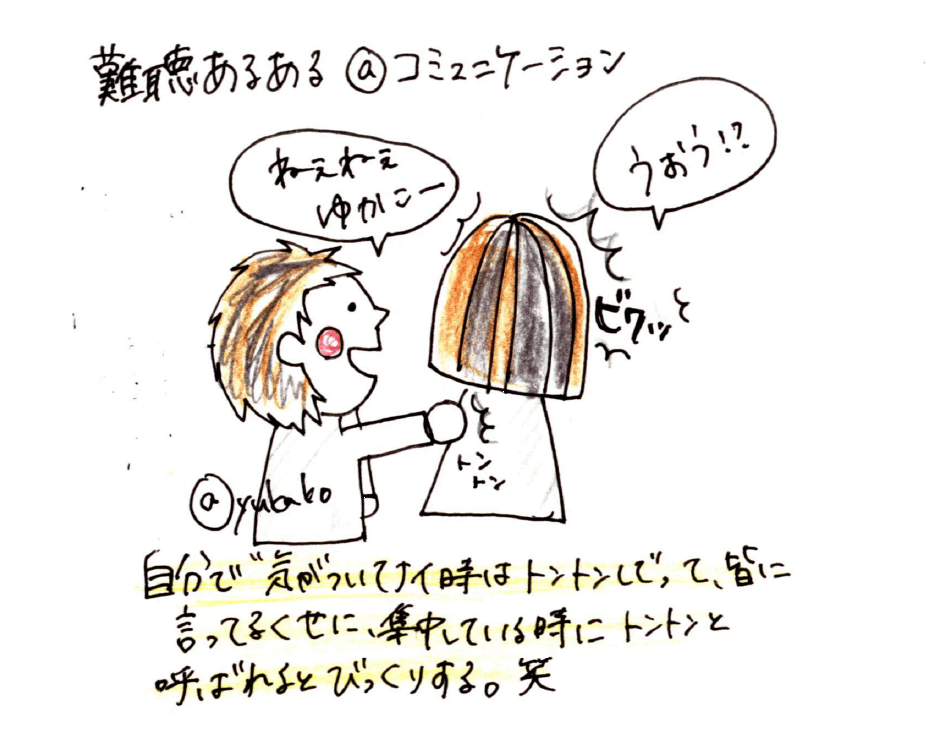 難聴あるある@コミュニケーション
ねぇねぇ
ゆかこー
うおう!?
ビクッ
トン
トン
@yukako
自分で"気がついてナイ時はトントンしてって、皆に
言ってるくせに、集中している時にトントンと
呼ばれるとびっくりする。笑